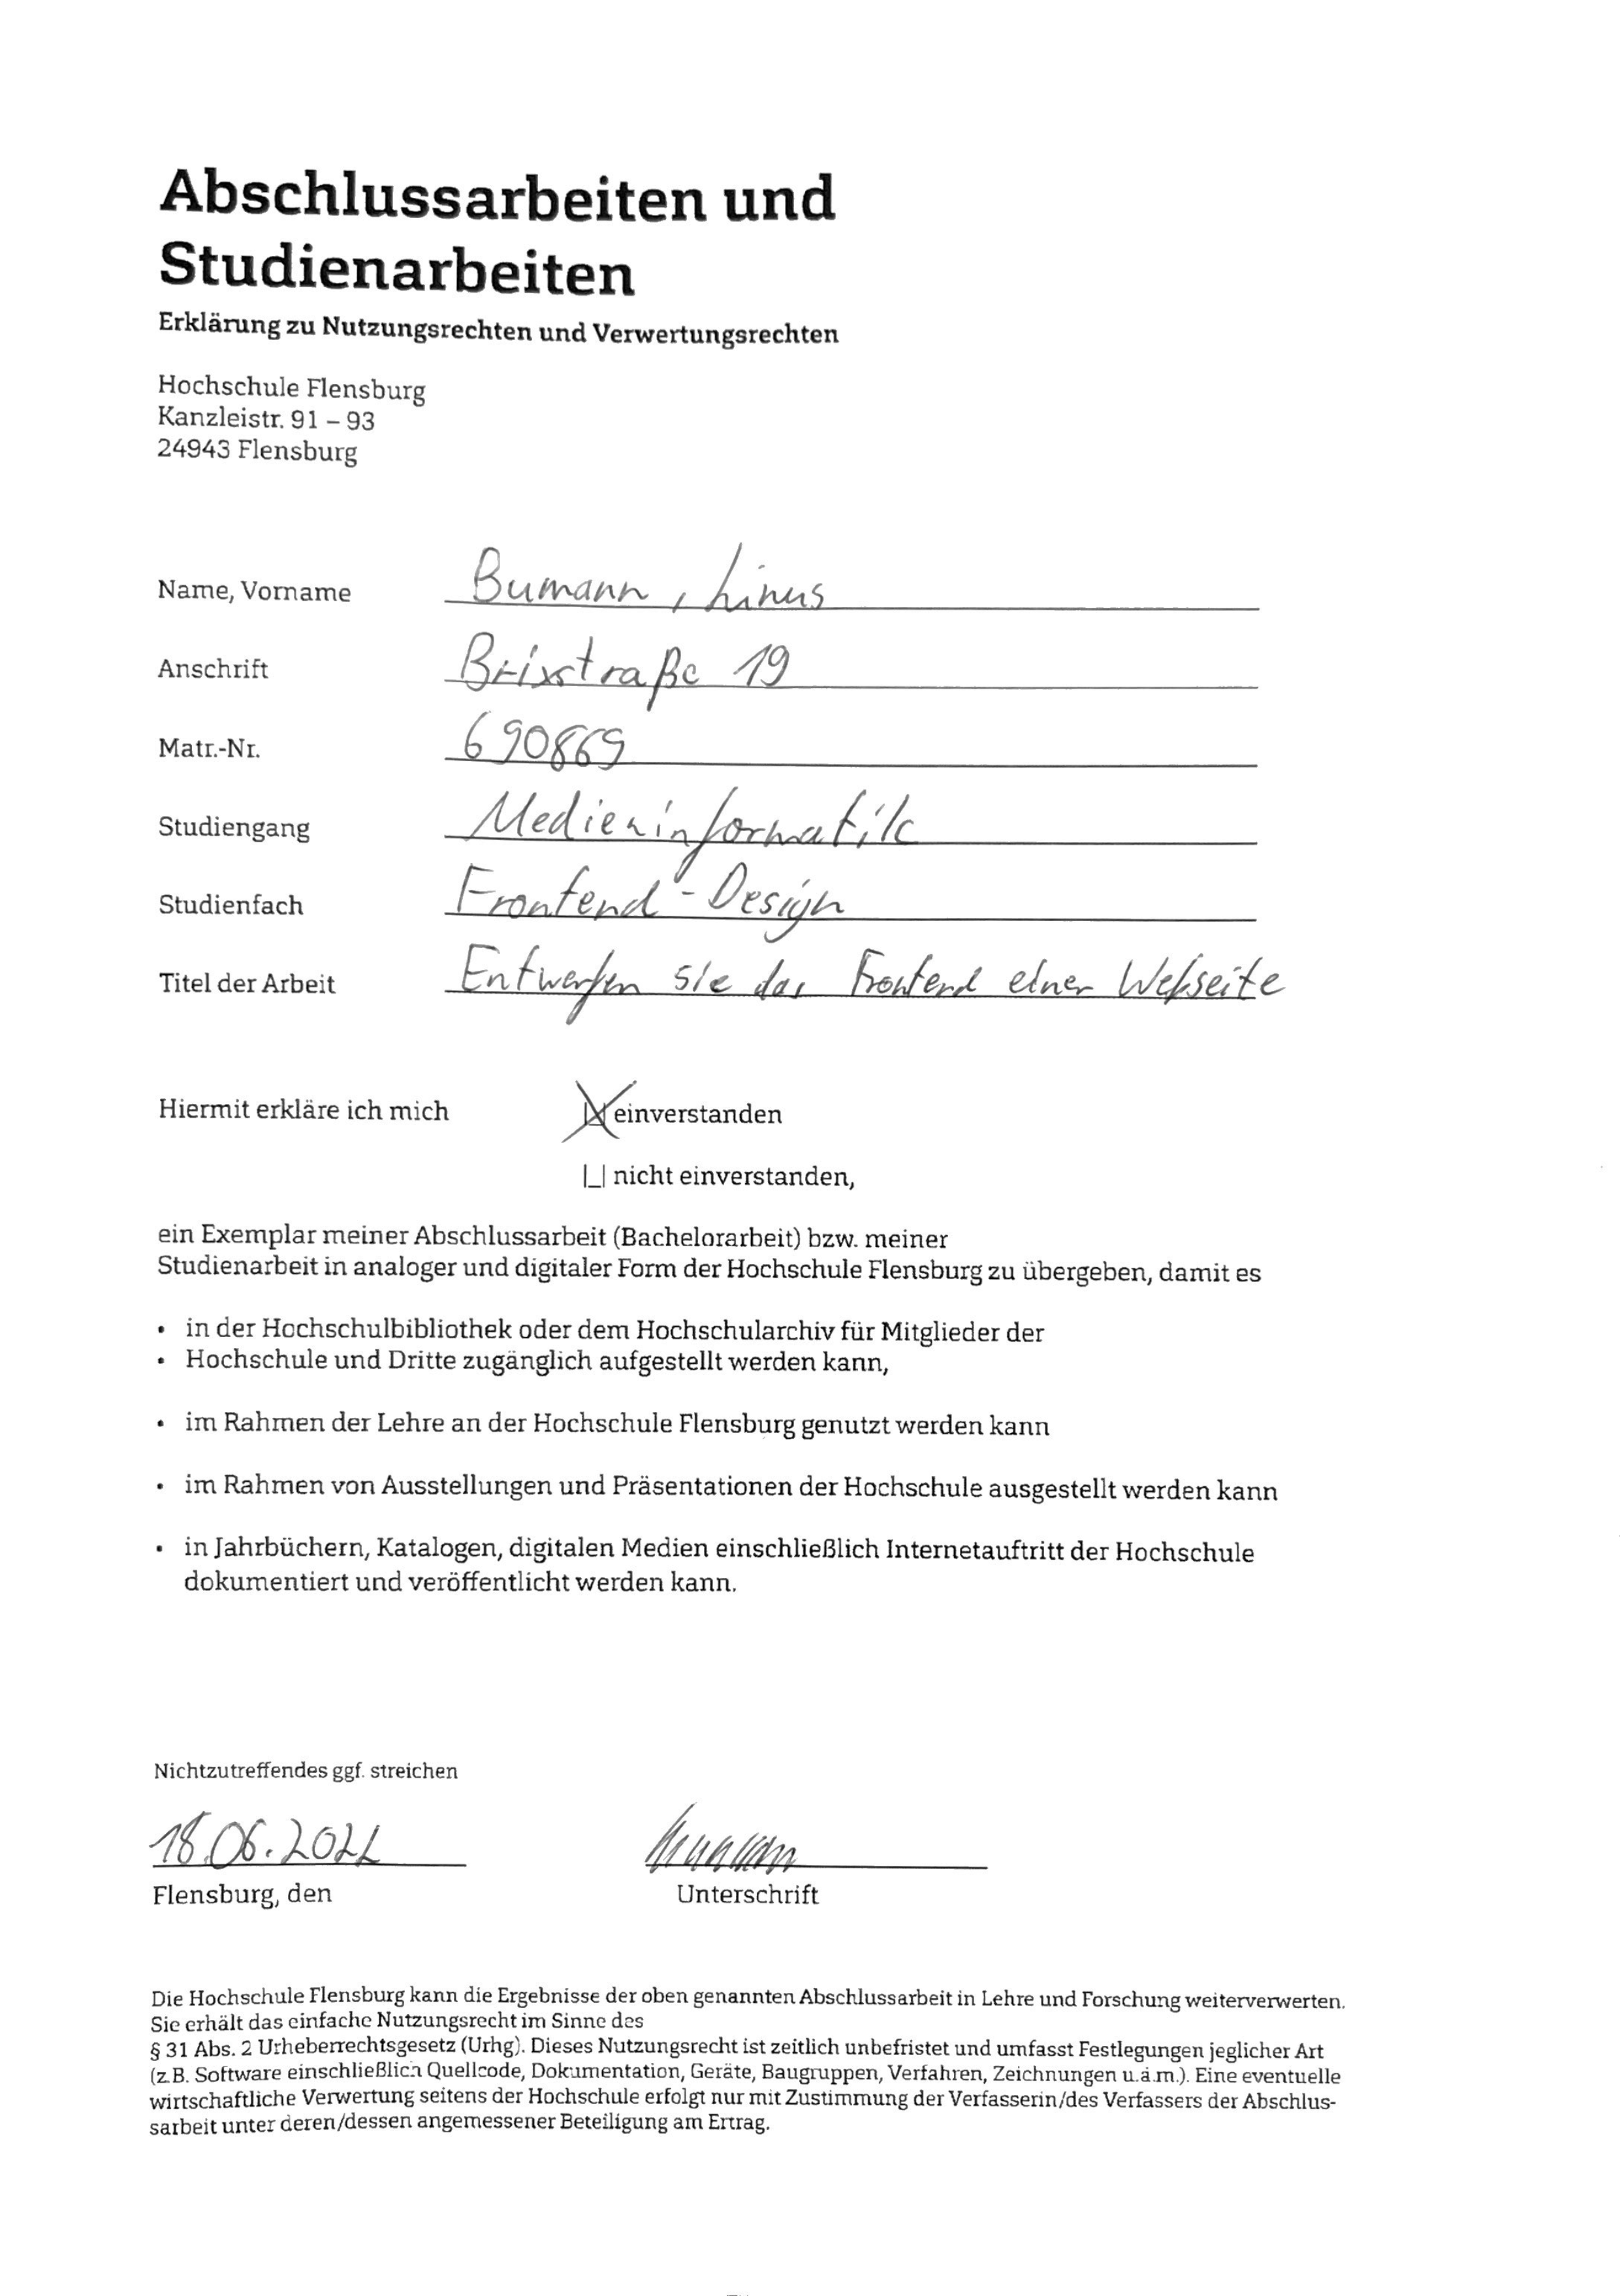 Abschlussarbeiten und
Studienarbeiten
Erklärung zu Nutzungsrechten und Verwertungsrechten
Hochschule Flensburg
Kanzleistr. 91 – 93
24943 Flensburg
Name, Vorname Bumann, Linus
Anschrift Brixstraße 19
Matr.-Nr. 690869
Studiengang Medieninformatik
Studienfach Frontend-Design
Titel der Arbeit Entwerfen sie das Frontend einer Webseite
Hiermit erkläre ich mich einverstanden
nicht einverstanden,
ein Exemplar meiner Abschlussarbeit (Bachelorarbeit) bzw. meiner
Studienarbeit in analoger und digitaler Form der Hochschule Flensburg zu übergeben, damit es
• in der Hochschulbibliothek oder dem Hochschularchiv für Mitglieder der
• Hochschule und Dritte zugänglich aufgestellt werden kann,
• im Rahmen der Lehre an der Hochschule Flensburg genutzt werden kann
• im Rahmen von Ausstellungen und Präsentationen der Hochschule ausgestellt werden kann
• in Jahrbüchern, Katalogen, digitalen Medien einschließlich Internetauftritt der Hochschule
dokumentiert und veröffentlicht werden kann.
Nichtzutreffendes ggf. streichen
18.06.2022
Flensburg, den Unterschrift
Die Hochschule Flensburg kann die Ergebnisse der oben genannten Abschlussarbeit in Lehre und Forschung weiterverwerten.
Sie erhält das einfache Nutzungsrecht im Sinne des
§ 31 Abs. 2 Urheberrechtsgesetz (Urhg). Dieses Nutzungsrecht ist zeitlich unbefristet und umfasst Festlegungen jeglicher Art
(z.B. Software einschließlich Quellcode, Dokumentation, Geräte, Baugruppen, Verfahren, Zeichnungen u.ä.m.). Eine eventuelle
wirtschaftliche Verwertung seitens der Hochschule erfolgt nur mit Zustimmung der Verfasserin/des Verfassers der Abschlus-
sarbeit unter deren/dessen angemessener Beteiligung am Ertrag.